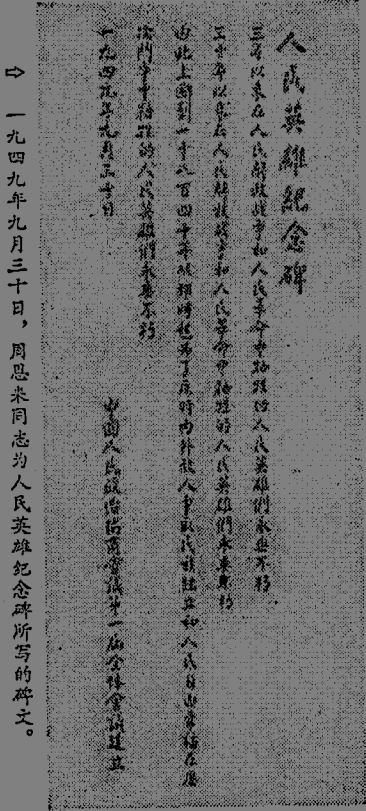 人民英雄紀念碑
三年以來在人民解放戰爭和人民革命中犧牲的人民英雄們永垂不朽
三十年以來在人民解放戰爭和人民革命中犧牲的人民英雄們永垂不朽
由此上溯到一千八百四十年從那時起為了反對內外敵人爭取民族獨立和人民自由幸福在歷
次鬥爭中犧牲的人民英雄們永垂不朽
一九四九年九月三十日
中國人民政治協商會議第一屆全體會議建立
⇨ 一九四九年九月三十日，周恩来同志为人民英雄纪念碑所写的碑文。